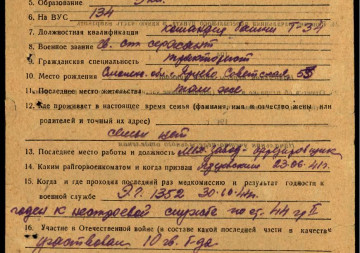 5. Образование
6. На ВУС 134
7. Должностная квалификация командир башни Т-34
8. Военное звание гв. ст. сержант
9. Гражданская специальность тракторист
10. Место рождения Смоленс. обл. Ярцево, Советская, 53
11. Последнее место жительства там же
12. Где проживает в настоящее время семья (фамилия, имя и отчество жены или
родителей и точный их адрес)
семьи нет
13. Последнее место работы и должность
14. Каким райгорвоенкоматом и когда призван Ярцевским 23-06-41г.
15. Когда и где проходил последний раз медкомиссию и результат годности к
военной службе ЭГ. 1352 30-10-44г.
годен к нестроевой службе по ст. 44 гр II
16. Участие в Отечественной войне (в составе какой последней части в качестве
участвовал 10 гв.